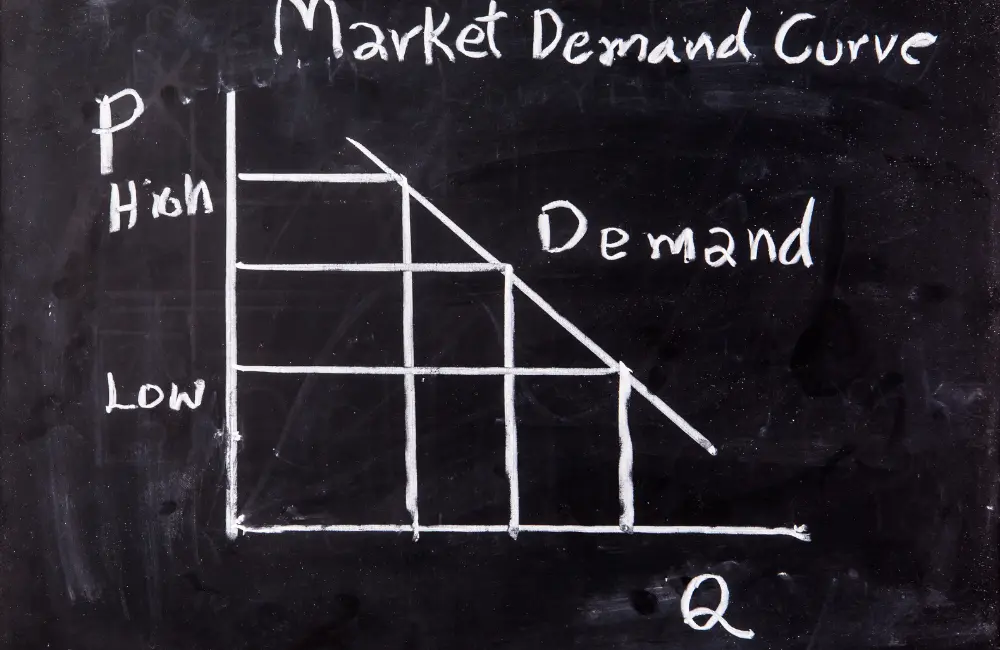 Market Demand Curve
P
High
Demand
Low
Q